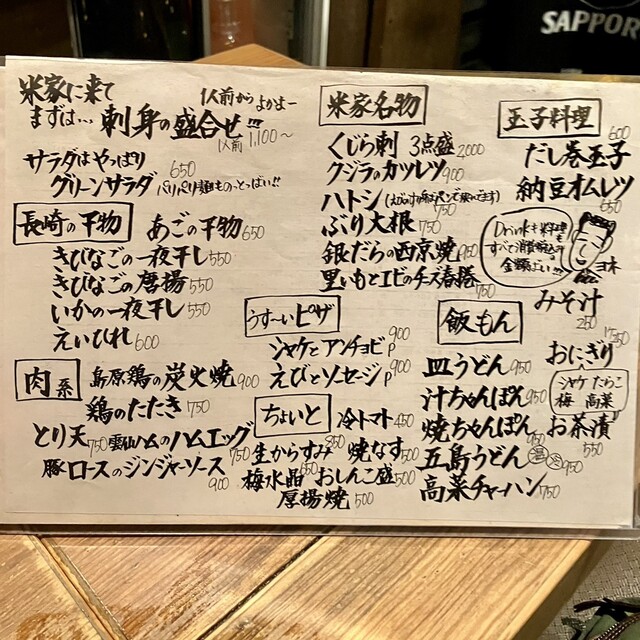 SAPPORO
米家に来て
まずは… 刺身の盛合せ!!!
1人前から よかよー
1人前 1,100〜
サラダはやっぱり
グリーンサラダ 650
パリパリ麺ものっとっばい!!
長崎の干物
あごの干物 650
きびなごの一夜干し 550
きびなごの唐揚 550
いかの一夜干し 550
えいひれ 600
肉系
島原鶏の炭火焼 900
鶏のたたき 750
とり天 750
雲仙ハムのハムエッグ 750
豚ロースのジンジャーソース 900
米家名物
くじら刺 3点盛 2,000
クジラのカツレツ 900
ハトシ 750
ぶり大根 750
銀だらの西京焼 950
里いもとエビのチーズ春捲 750
うす〜いピザ
シャケとアンチョビP 900
えびとソーセージP 900
ちょいと
冷トマト 450
生からすみ 850
焼なす 500
梅水晶 650
おしんこ盛 500
厚揚焼 500
玉子料理
だし巻玉子 600
納豆オムレツ 650
Drinkも料理も
すべて消費税込み
金額ばい!!
ヨネ
みそ汁 250
飯もん
皿うどん 950
汁ちゃんぽん 950
焼ちゃんぽん 950
五島うどん 温 冷 950
高菜チャーハン 750
おにぎり 250
シャケ たらこ
梅 高菜
お茶漬 550